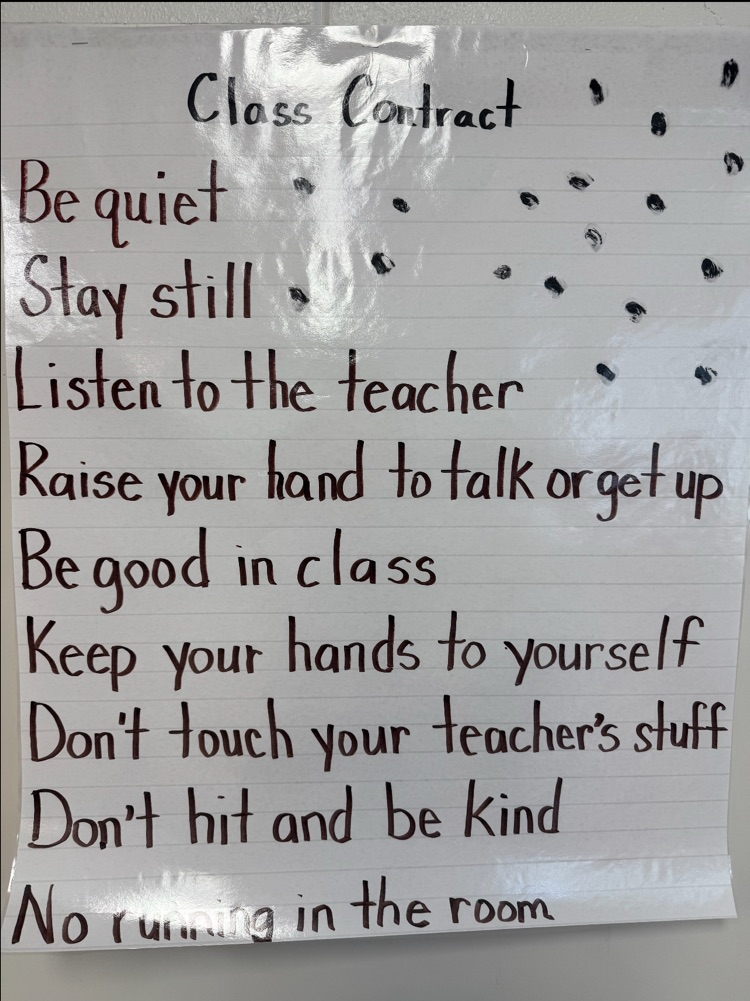 Class Contract
Be quiet
Stay still
Listen to the teacher
Raise your hand to talk or get up
Be good in class
Keep your hands to yourself
Don't touch your teacher's stuff
Don't hit and be kind
No running in the room